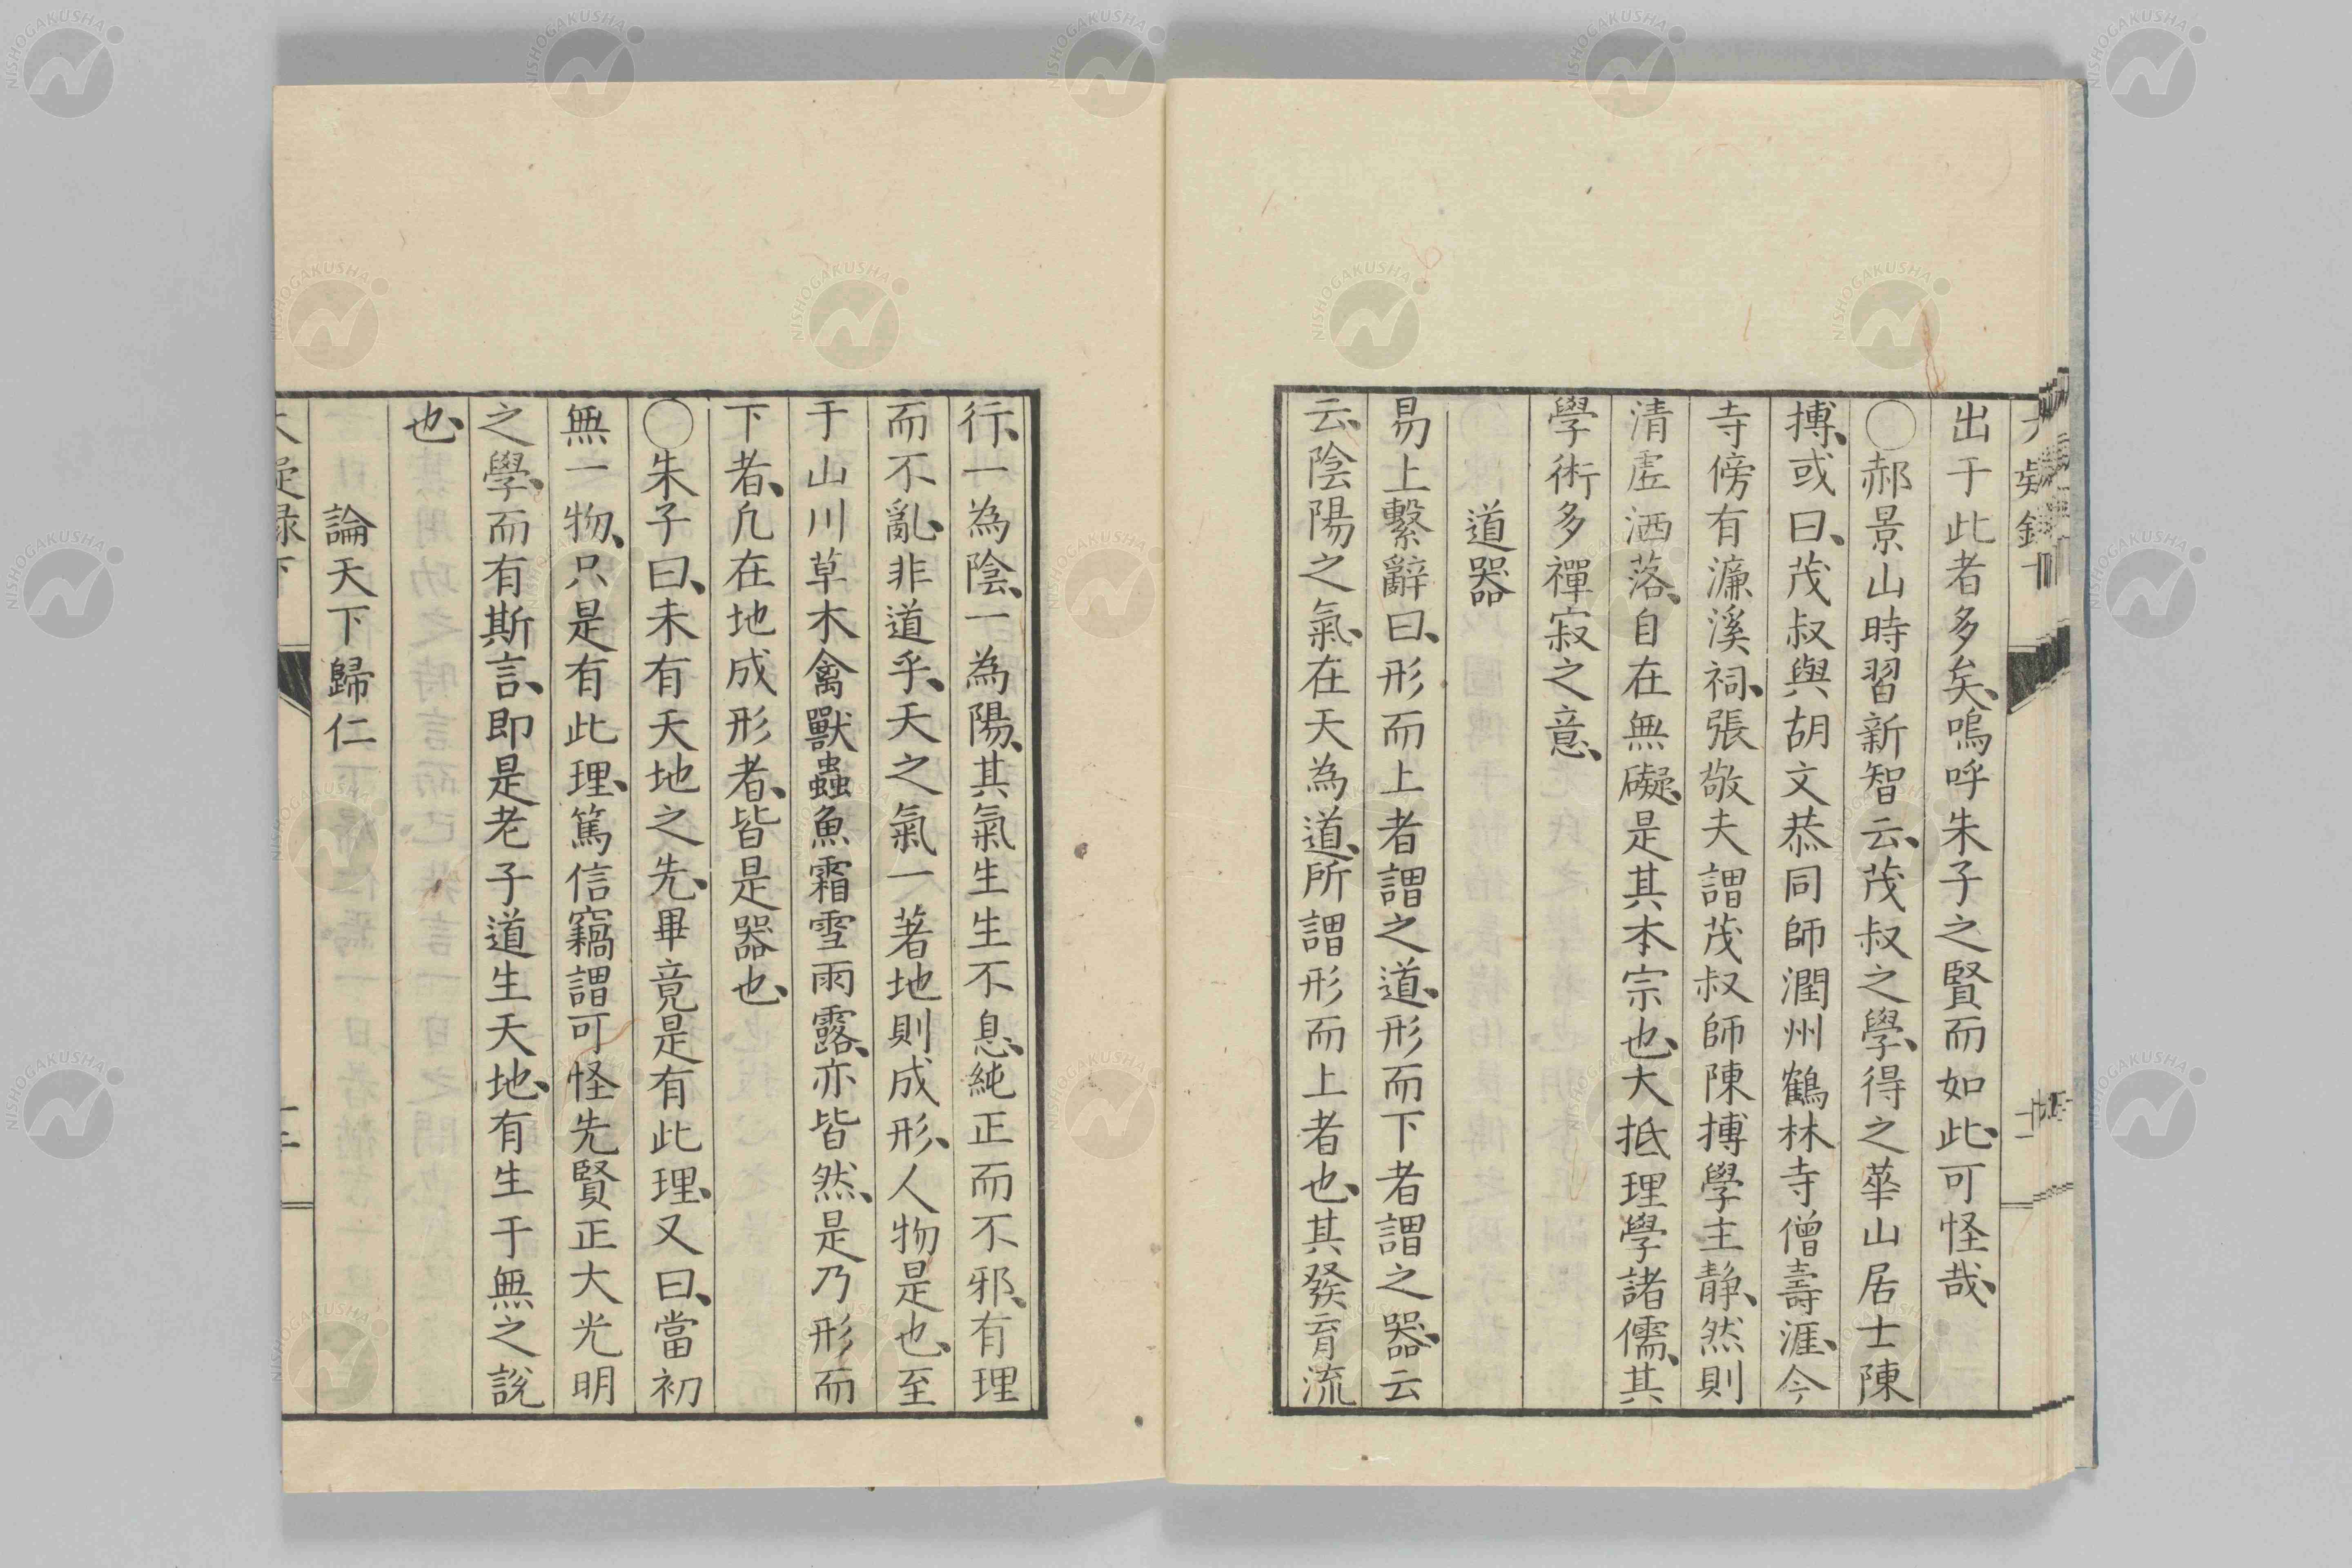 出于此者多矣、嗚呼朱子之賢而如此、可怪哉、
〇郝景山時習新智云、茂叔之學、得之華山居士陳
摶、或曰、茂叔與胡文恭同師潤州鶴林寺僧壽涯、今
寺傍有濂溪祠、張敬夫謂茂叔師陳摶學主静、然則
清虗洒落、自在無礙、是其本宗也、大抵理學諸儒、其
學術多禪寂之意、
道器
易上繫辭曰、形而上者謂之道、形而下者謂之器、云
云、陰陽之氣、在天為道、所謂形而上者也、其發育流
行、一為陰、一為陽、其氣生生不息、純正而不邪、有理
而不亂、非道乎、天之氣一著地則成形、人物是也、至
于山川草木禽獸蟲魚霜雪雨露、亦皆然、是乃形而
下者、凡在地成形者、皆是器也、
〇朱子曰、未有天地之先、畢竟是有此理、又曰、當初
無一物、只是有此理、篤信竊謂可怪先賢正大光明
之學、而有斯言、即是老子道生天地、有生于無之說
也、
論天下歸仁